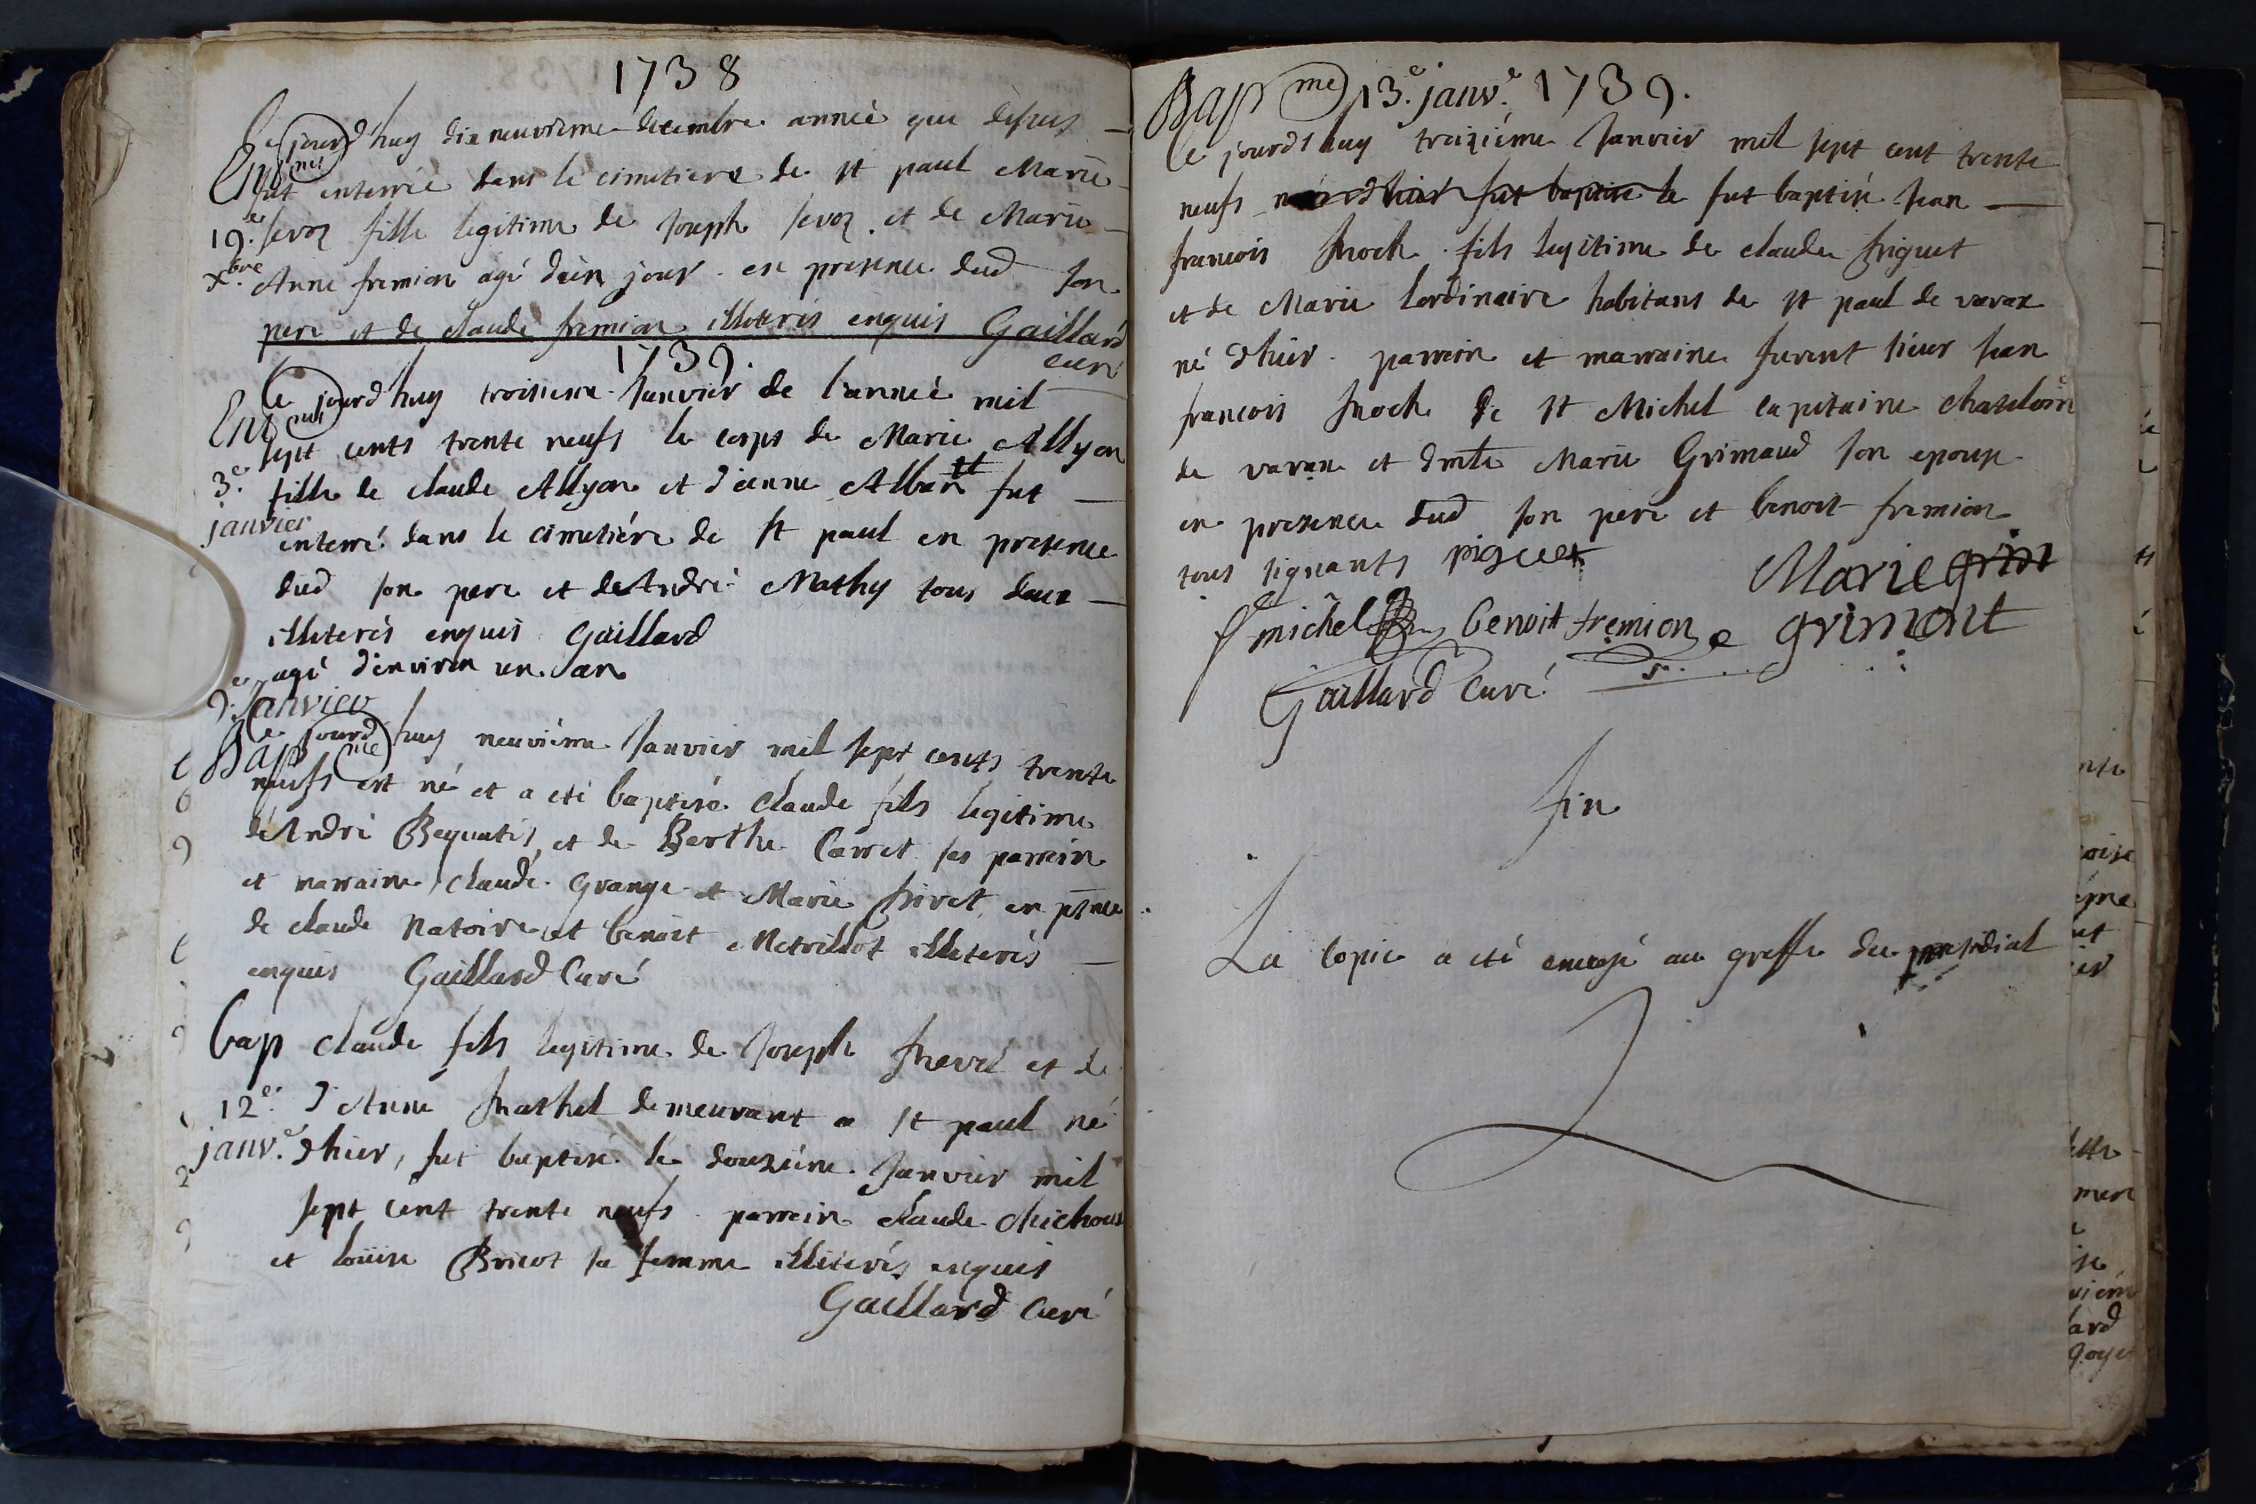 1738
Ce jourd'huy dixneuvieme decembre année que dessus
Ent met
fut enterrée dans le cimetiere de st paul Marie
19.e
sevoz fille legitime de Joseph sevoz. et de Marie
xbre
Anne fremion agé d'un jour. en presence dud son
pere et de claude fremion illiterés enquis Gaillard
curé
1739.
Ce jourd'huy troisieme Janvier de l'année mil
Ent met
sept cents trente neufs le corps de Marie Allyon
3.e
fille de claude Allyon et d'éenne Alban fut
janvier
enterré dans le cimetiére de st paul en presence
dud son pere et de André Mathy tous deux
illiterés enquis Gaillard
agé d'environ un an
9.e Janvier
Ce jourd'huy neuviéme Janvier mil sept cents trente
Bap me
neufs est né et a eté baptisé claude fils legitime
de André Bequatis et de Berthe Carret ses parrein
et marraine claude grange et Marie Piret en pnce
de claude Natoire et benoit Metrillot illiterés
enquis Gaillard Curé
bap claude fils legitime de Joseph et de
12.e d'Anne demeurant a st paul né
janv.e d'hier, fut baptisé le douziéme Janvier mil
sept cent trente neufs. parrein claude Michoux
et loüise Bricot sa femme illiterés enquis
Gaillard Curé
Bap me 13.e janv.e 1739.
Ce jourd'huy treiziéme Janvier mil sept cent trente
neufs né d'hier fut baptisé le fut baptisé Jean
francois fils legitime de claude
et de Marie lordinaire habitans de st paul de varax
né d'hier. parrein et marraine furent sieur Jean
francois de st Michel capitaine chatelain
de varax et dmlle Marie Grimaud son epouse
en presence dud son pere et benoit fremion
tous signants piguet
Marie grim
st michel benoit fremion e grimont
Gaillard Curé
fin
La copie a eté envoyé au greffe du presidial